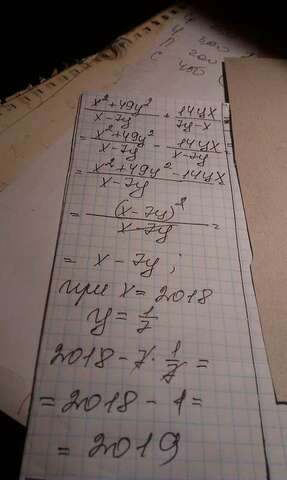 (x²+49y²)/(x-7y) + 14yx/(7y-x) =
= (x²+49y²)/(x-7y) - 14yx/(x-7y) =
= (x²+49y²-14yx)/(x-7y)
= (x-7y)²/(x-7y) =
= x-7y;
при x=2018
y=1/7
2018-7·1/7=
=2018-1=
=2019